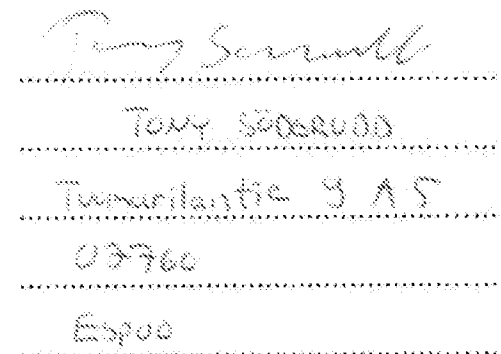 Tony
TONY SÖDERUDD
Tumurilantie 9 A 5
02760
Espoo